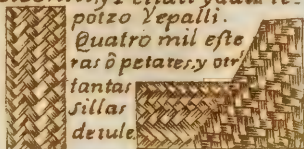 potzo Yepalli.
Quatro mil este
ras ò petates, y otr
tantas
sillas
de tule